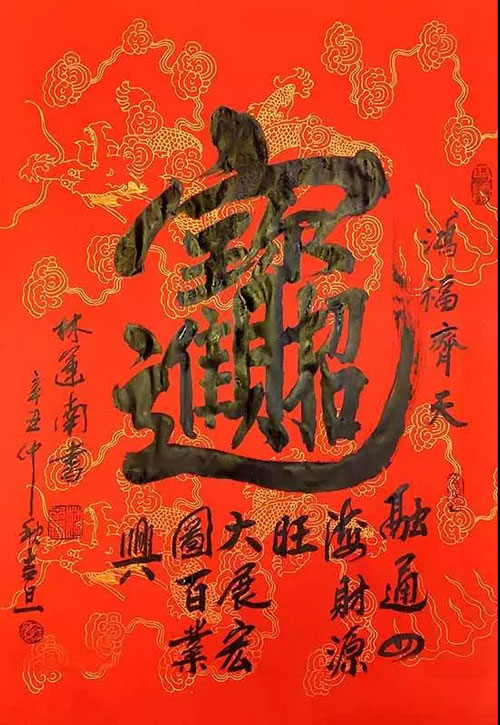 鴻福齊天
招財進寶
融通四
海財源
旺
大展宏
圖百業
興
林運南書
辛丑仲秋吉旦